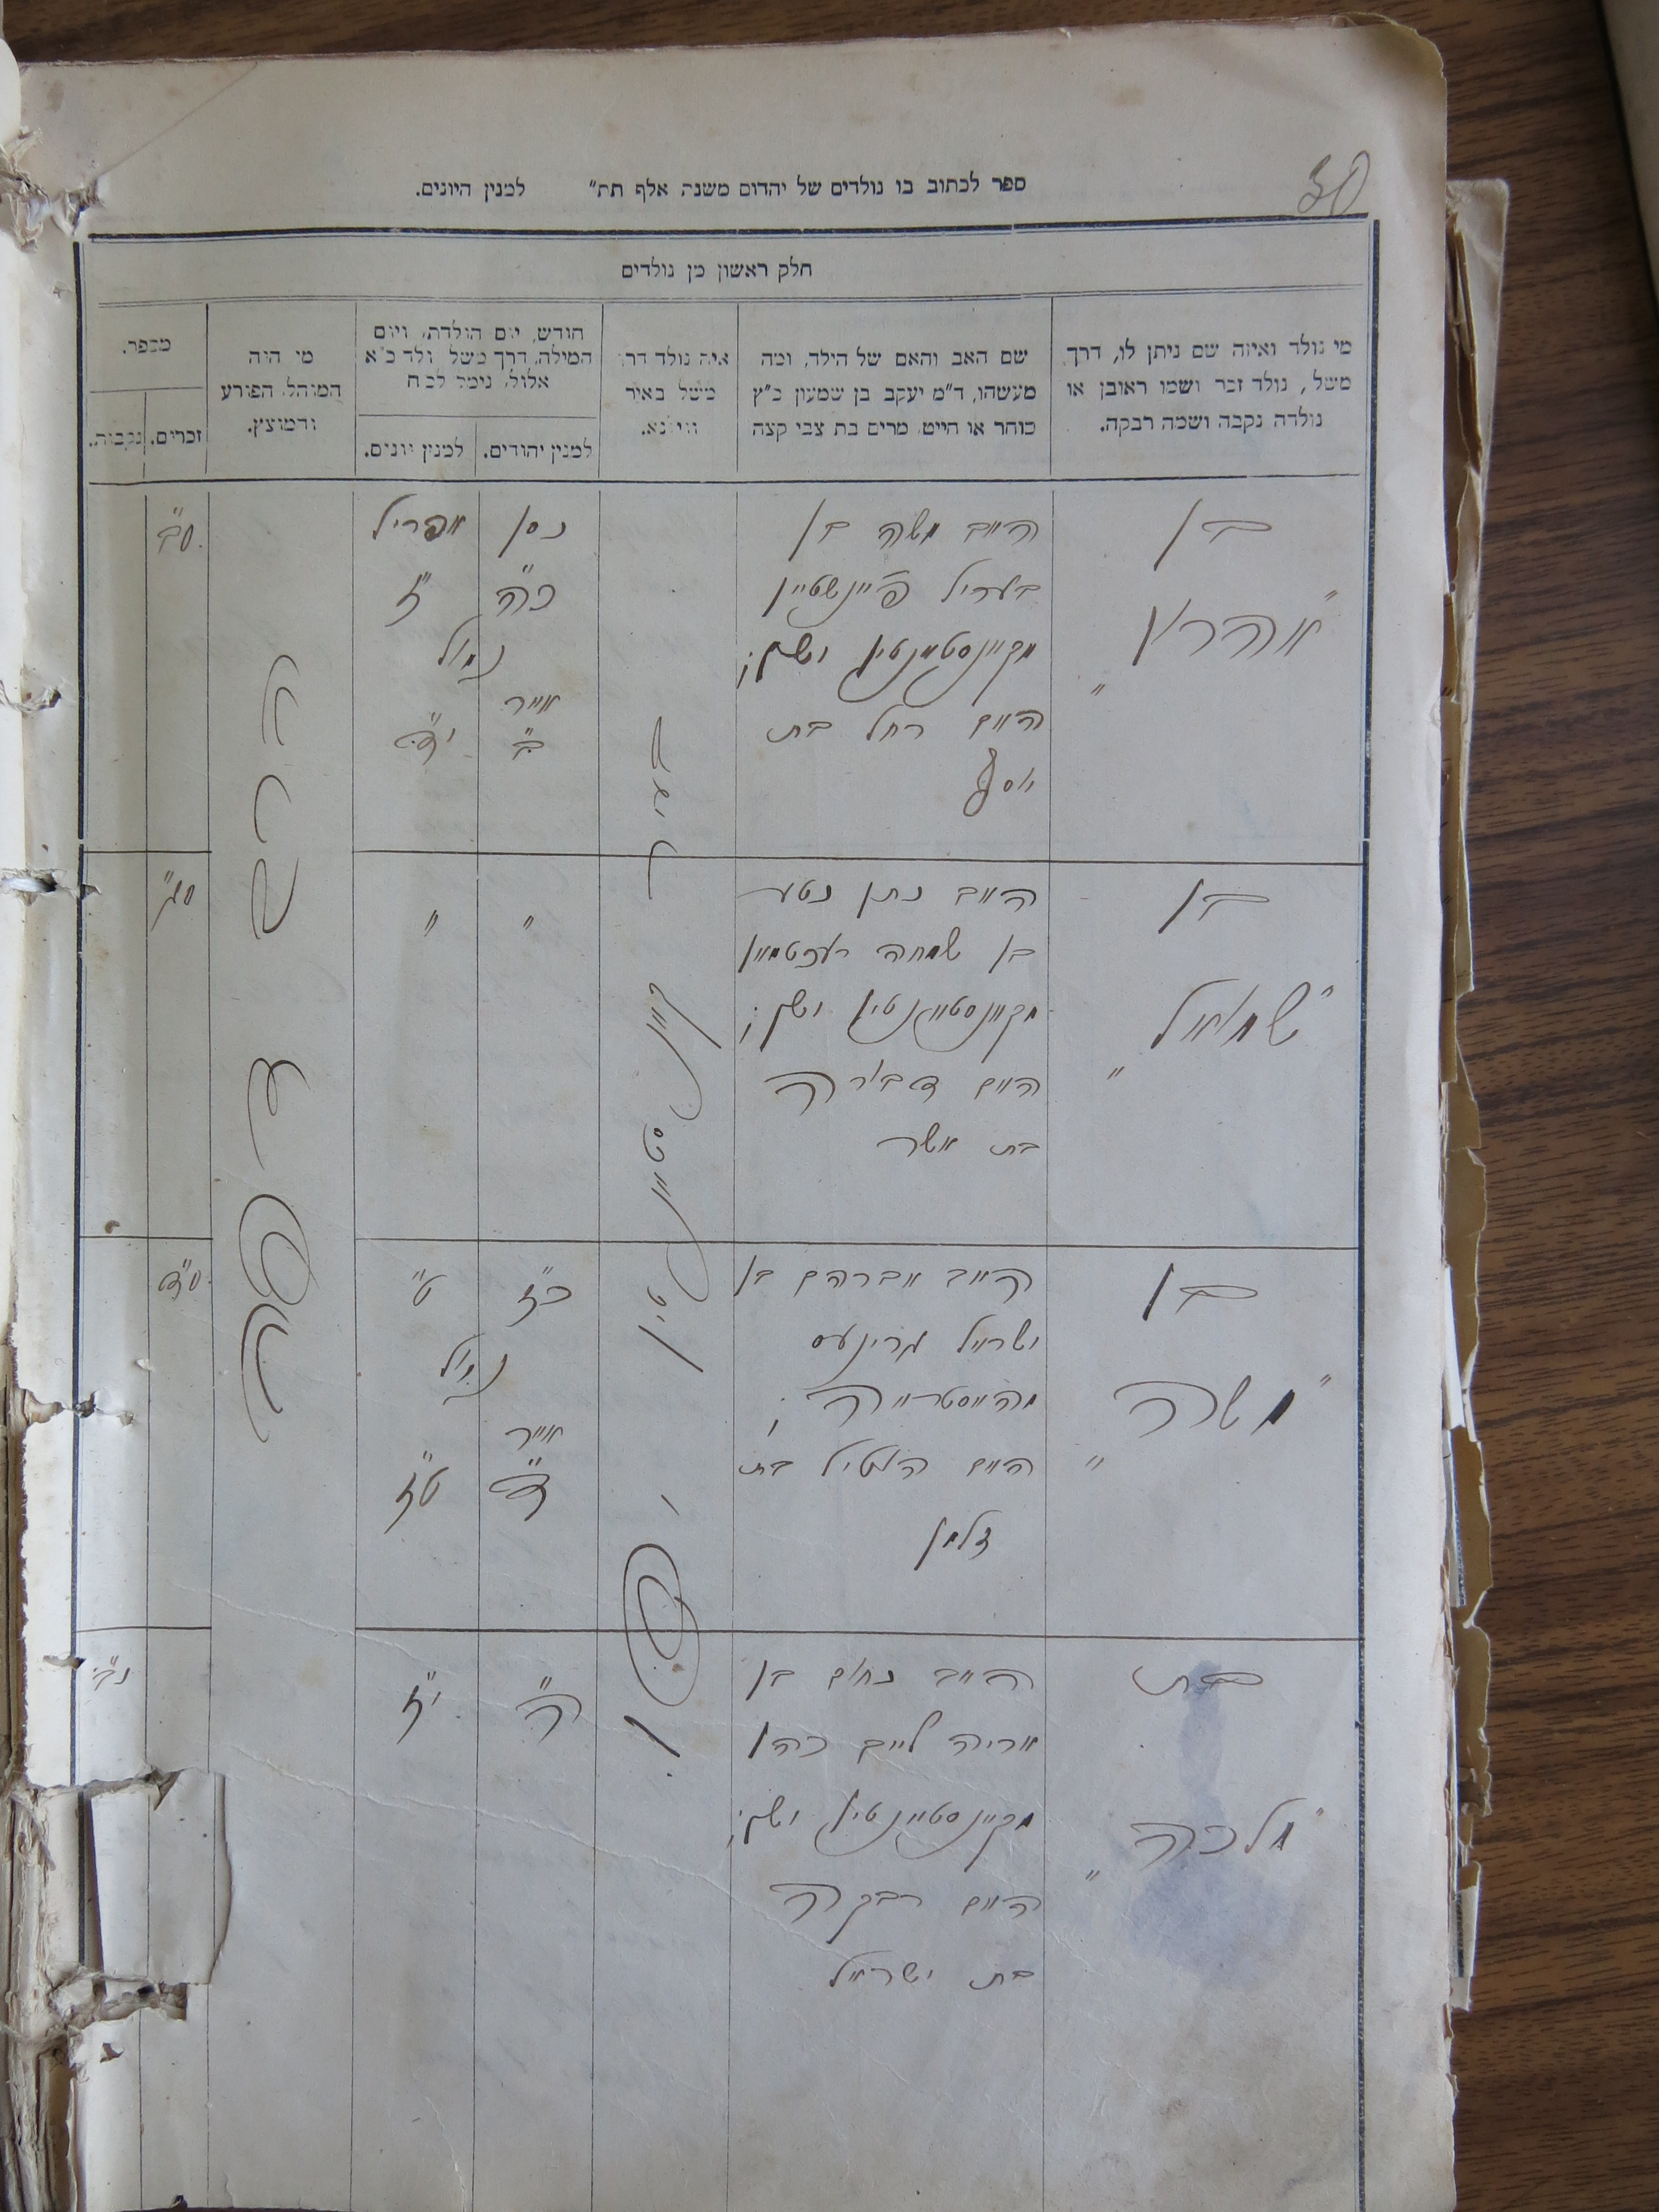 30
ספר לכתוב בו נולדים של יהדום משנת אלף תת״ למנין היונים.
חלק ראשון מן נולדים
מי נולד ואיזה שם ניתן לו, דרך
משל, נולד זכר ושמו ראובן או
נולדה נקבה ושמה רבקה.
שם האב והאם של הילד, ומה
מעשהו, ד״מ יעקב בן שמעון כ״ץ
סוחר או חייט, מרים בת צבי קצה
איה נולד דרך
משל באיר
ווילנא.
חודש, יום הולדת, ויום
המילה, דרך משל ולד כ״א
אלול, נימל לכ״ח
למנין יהודים.
למנין יונים.
מי היה
המוהל הפורע
והמוצץ.
מספר.
זכרים.
נקבות.
בן
"אהרן"
האב משה בן
בערל פיינשטיין
מקאנסטאנטין ישן;
האם רחל בת
יוסף
ניסן
כ״ה
אפריל
ז״
נמול
אייר
ב״
י״ד
ס״ב
בן
"שמואל"
האב נתן נטע
בן שמחה
מקאנסטאנטין ישן;
האם דבורה
בת אשר
"
"
ס״ג
בן
"משה"
האב אברהם בן
ישראל גרינעס
האם בת
זלמן
כ״ז
ט״
נמול
אייר
ד״
ט״ז
ס״ד
בת
"מלכה"
האב נחום בן
אריה לייב כהן
מקאנסטאנטין ישן;
האם רבקה
בת ישראל
ה״
י״ז
נ״ב
העיר קאנסטאנטין ישן.